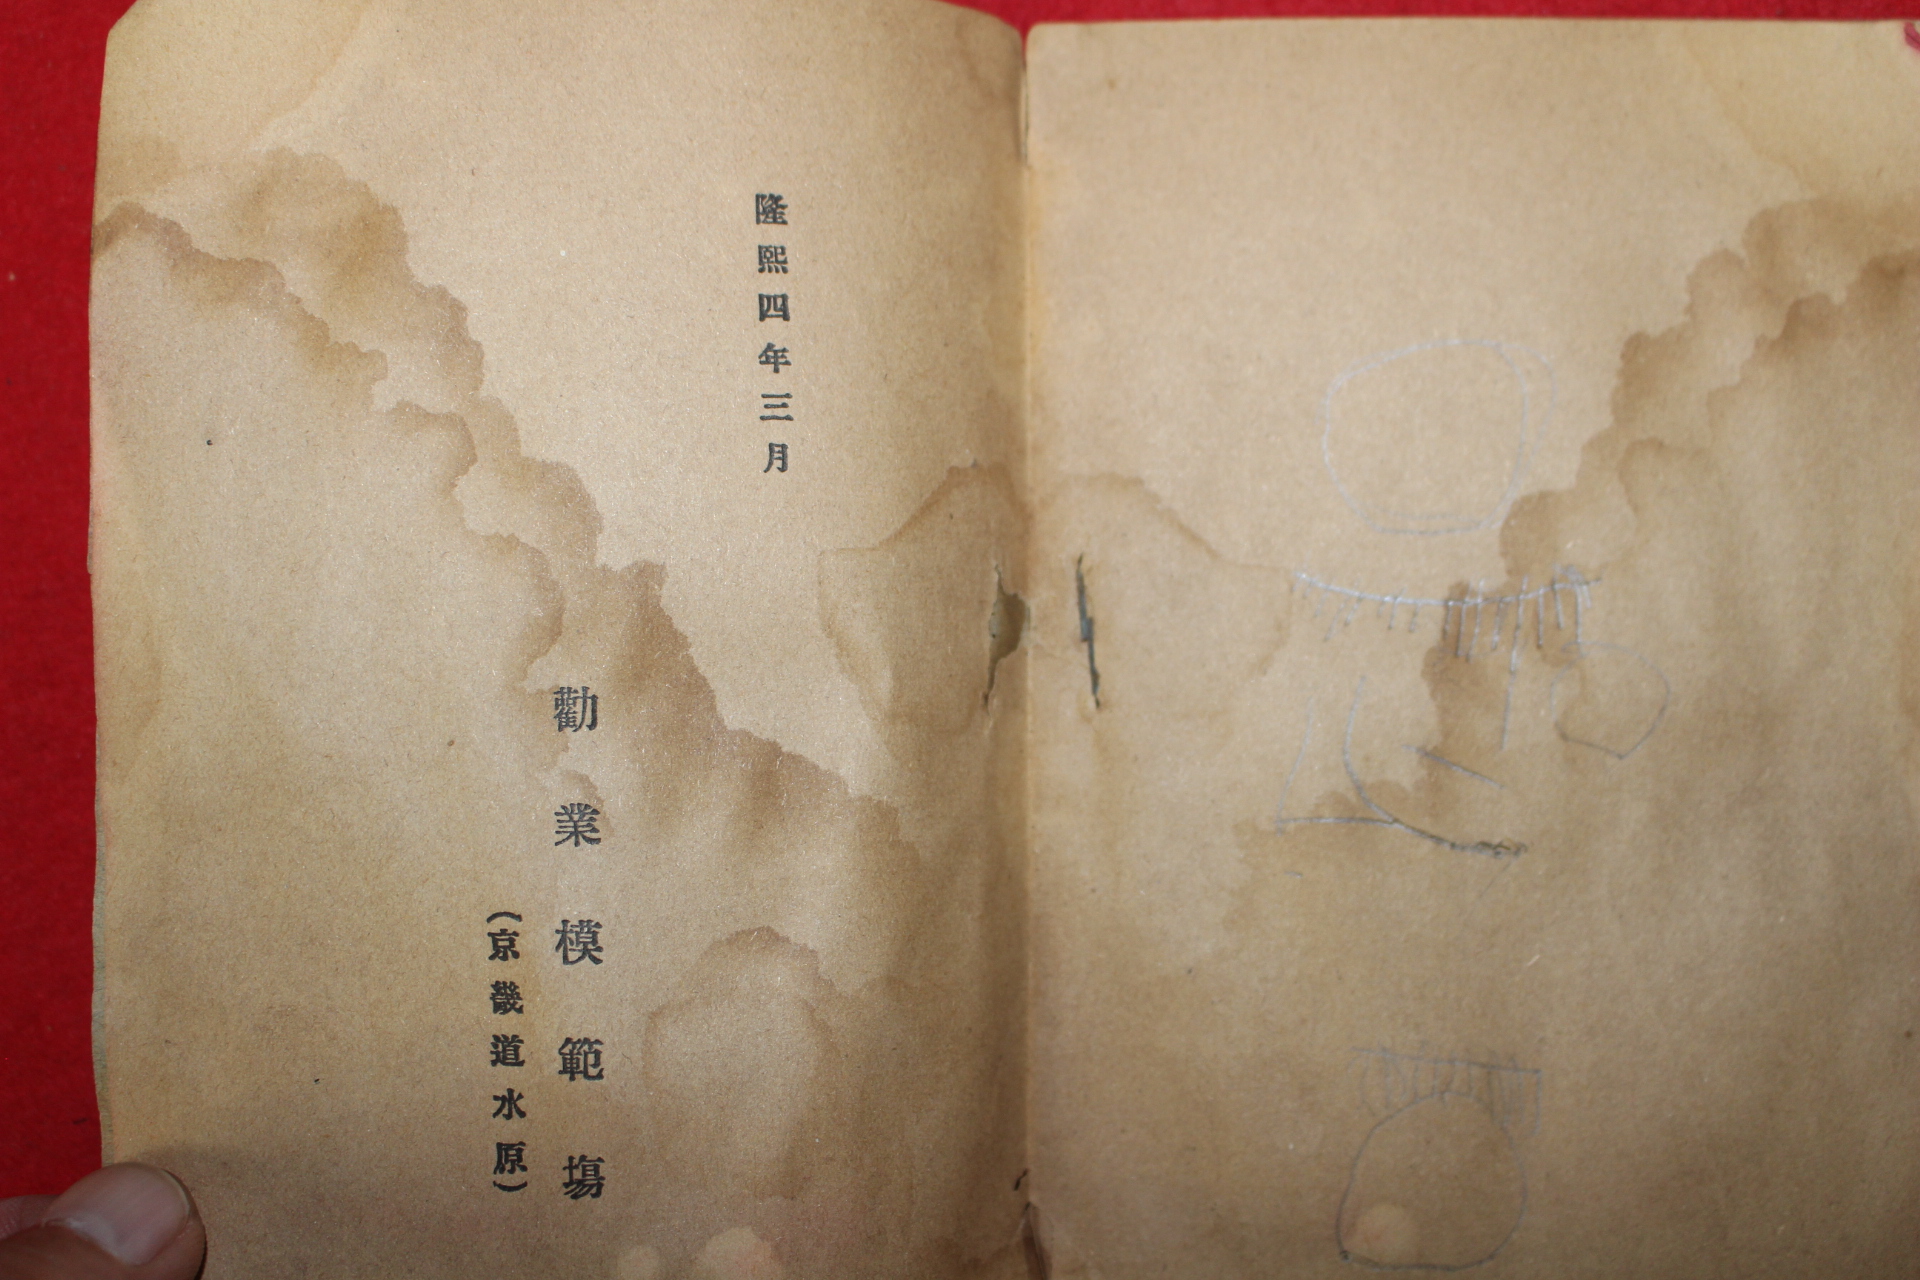 隆熙四年三月
勸業模範場
(京畿道水原)